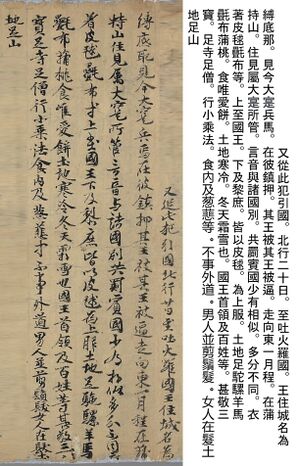 又從此犯引國。北行二十日。至吐火羅國。王住城名為
縛底那。見今大寔兵馬。在彼鎮押。其王被其王被逼。走向東一月程。在蒲
持山。住見屬大寔所管。言音與諸國別。共罽賓國少有相似。多分不同。衣
著皮毬氎布等。上至國王。下及黎庶。皆以皮毬。為上服。土地足駝騾羊馬
氎布蒲桃。食唯愛餅。土地寒冷。冬天霜雪也。國王首領及百姓等。甚敬三
寶。足寺足僧。行小乘法。食內及葱等。不事外道。男人並剪鬚髮。女人在髮土
地足山
又從此犯引國北行廿日至吐火羅國王住城名為
縛底耶見今大寔兵馬在彼鎮押其王被其王被逼走向東一月程在蒲
持山住見屬大寔所管言音與諸國別共罽賓國少有相似多分不同衣
著皮毬氎布等上至國王下及黎庶皆以皮毬為上服土地足駝騾羊馬
氎布蒲桃食唯愛餅土地寒冷冬天霜雪也國王首領及百姓等甚敬三
寶足寺足僧行小乘法食肉及葱韮等不事外道男人並剪鬚髮女人在髮
地足山